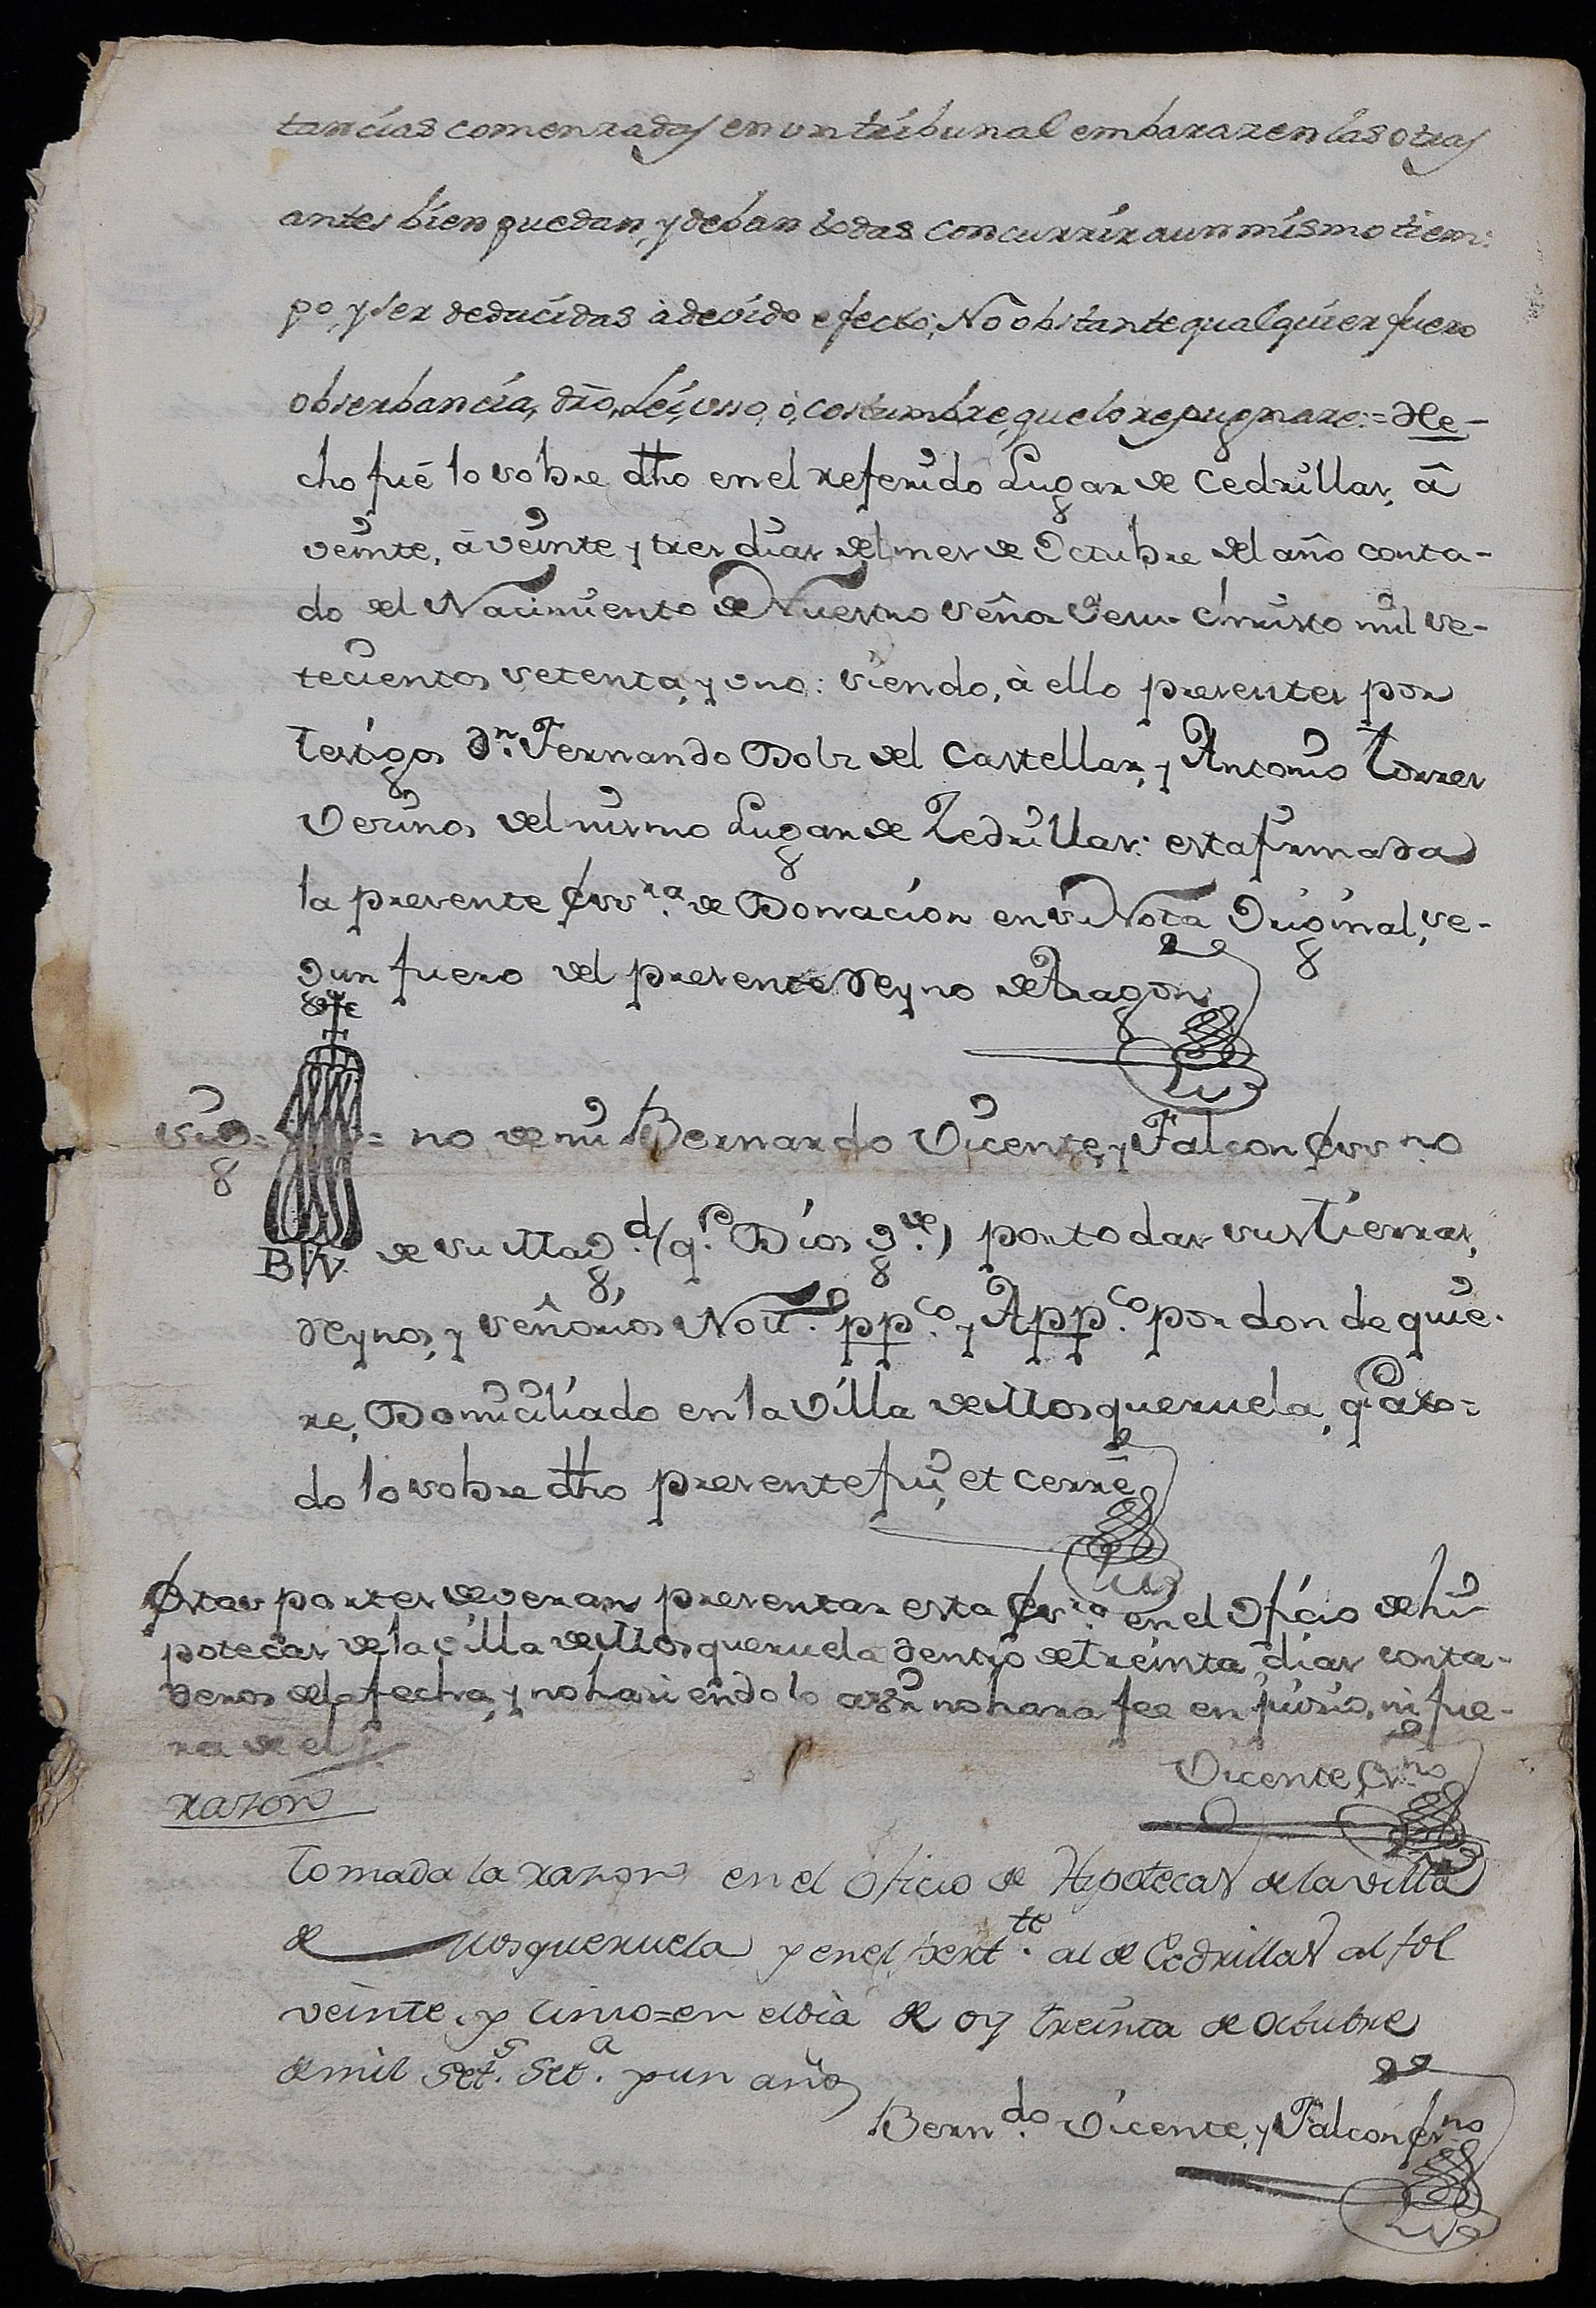 tancias comenzadas en un tribunal embarazen las otras
antes bien puedan, y deban todas concurrir a un mismo tiem:
po, y ser deducidas à devido efecto; No obstante qualquier fuero
obserbancia, dro, Lei, usso, ò, costumbre, que lo repugnare:= He-
cho fuè lo sobre dho en el referido Lugar de Cedrillas, â
veinte, à veinte y tres dias del mes de Octubre del año conta-
do del Nacimiento de Nuestro Señor Jesu-christo mil se-
tecientos setenta, y uno: siendo, à ello presentes por
testigos Dn. Fernando Dolz del Castellar, y Antonio Torres
Vecinos del mismo Lugar de Zedrillas: esta firmada
la presente Essra. de Donacion en su Nota Original, se-
gun fuero del presente Reyno de Aragon
Sig= =no de mi Bernardo Vicente, y Falcon Essno
BV de su Magd. (qe. Dios gue.) por todas sus Tierras,
Reynos, y Señorios Nott.o ppco. y Appco. por donde quie-
re, Domiciliado en la Villa de Mosqueruela, q. a to=
do lo sobre dho presente fui, et cerrè
Estas partes deveran presentar esta Esra. en el Oficio de hi-
potecas de la Villa de Mosqueruela dentro de treinta dias conta-
deros de la fecha, y no haciendolo assi no hara fee en juicio, ni fue-
ra de el
Vicente Esno
razon
Tomada la razon en el oficio de Hipotecas de la villa
de Mosqueruela y en el pertte. al de Cedrillas al fol
veinte, y cinco=en el dia de oy treinta de octubre
de mil Sets. Seta. y un año
Berndo. Vicente, y Falcon Esno